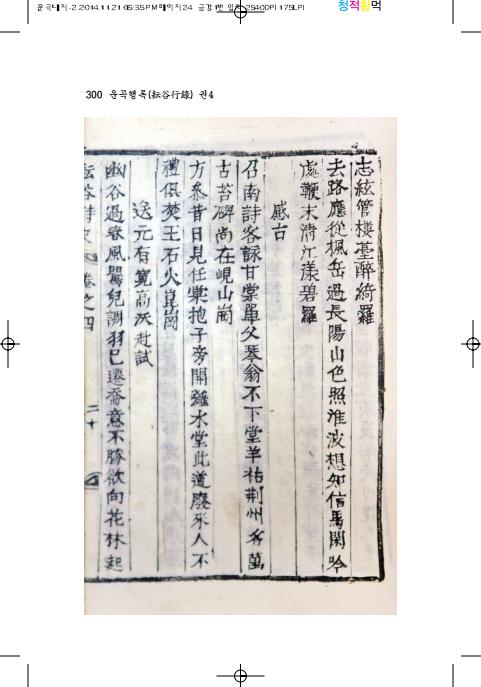 운곡내지-2 2014.11.21 05:35 PM 페이지24
2540DPI 175LPI
청적황먹
300 운곡행록(耘谷行錄) 권4
志絃管樓臺醉綺羅
去路應從楓岳過長陽山色照淮波想知信馬閑吟
處鞭末淸江漾碧羅
感古
召南詩客詠甘棠單父琴翁不下堂羊祜荆州名萬
古苔碑尚在峴山崗
方叅昔日見任棠抱子旁開薤水堂此道廢來人不
禮俱焚玉石火崑崗
送元有寬高沃赴試
幽谷過春風鸎兒調羽已遷喬意不勝欲向花林起
耘谷詩史 卷之四 二十